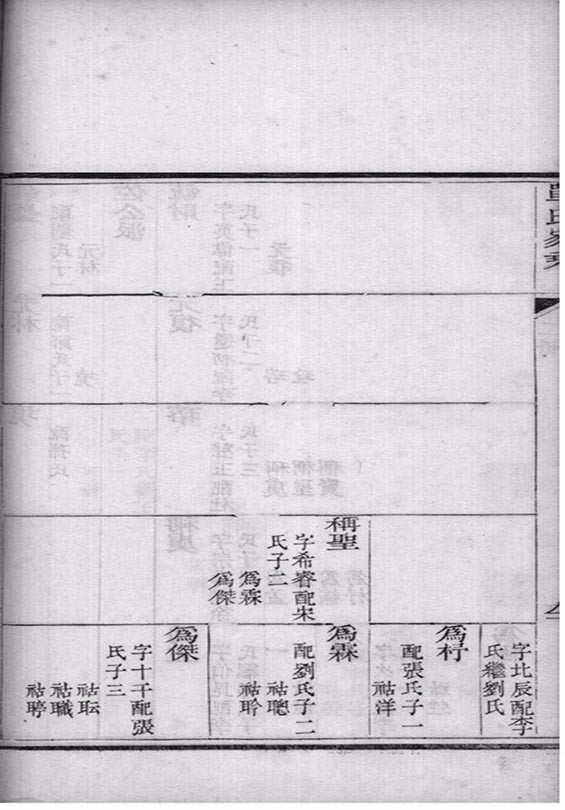 稱聖
字希睿配宋
氏子二
爲霖
爲傑
字北辰配李
氏繼劉氏
爲杍
配張氏子一
祜洋
爲霖
配劉氏子二
祜聰
祜聆
爲傑
字十千配張
氏子三
祜耺
祜職
祜聘